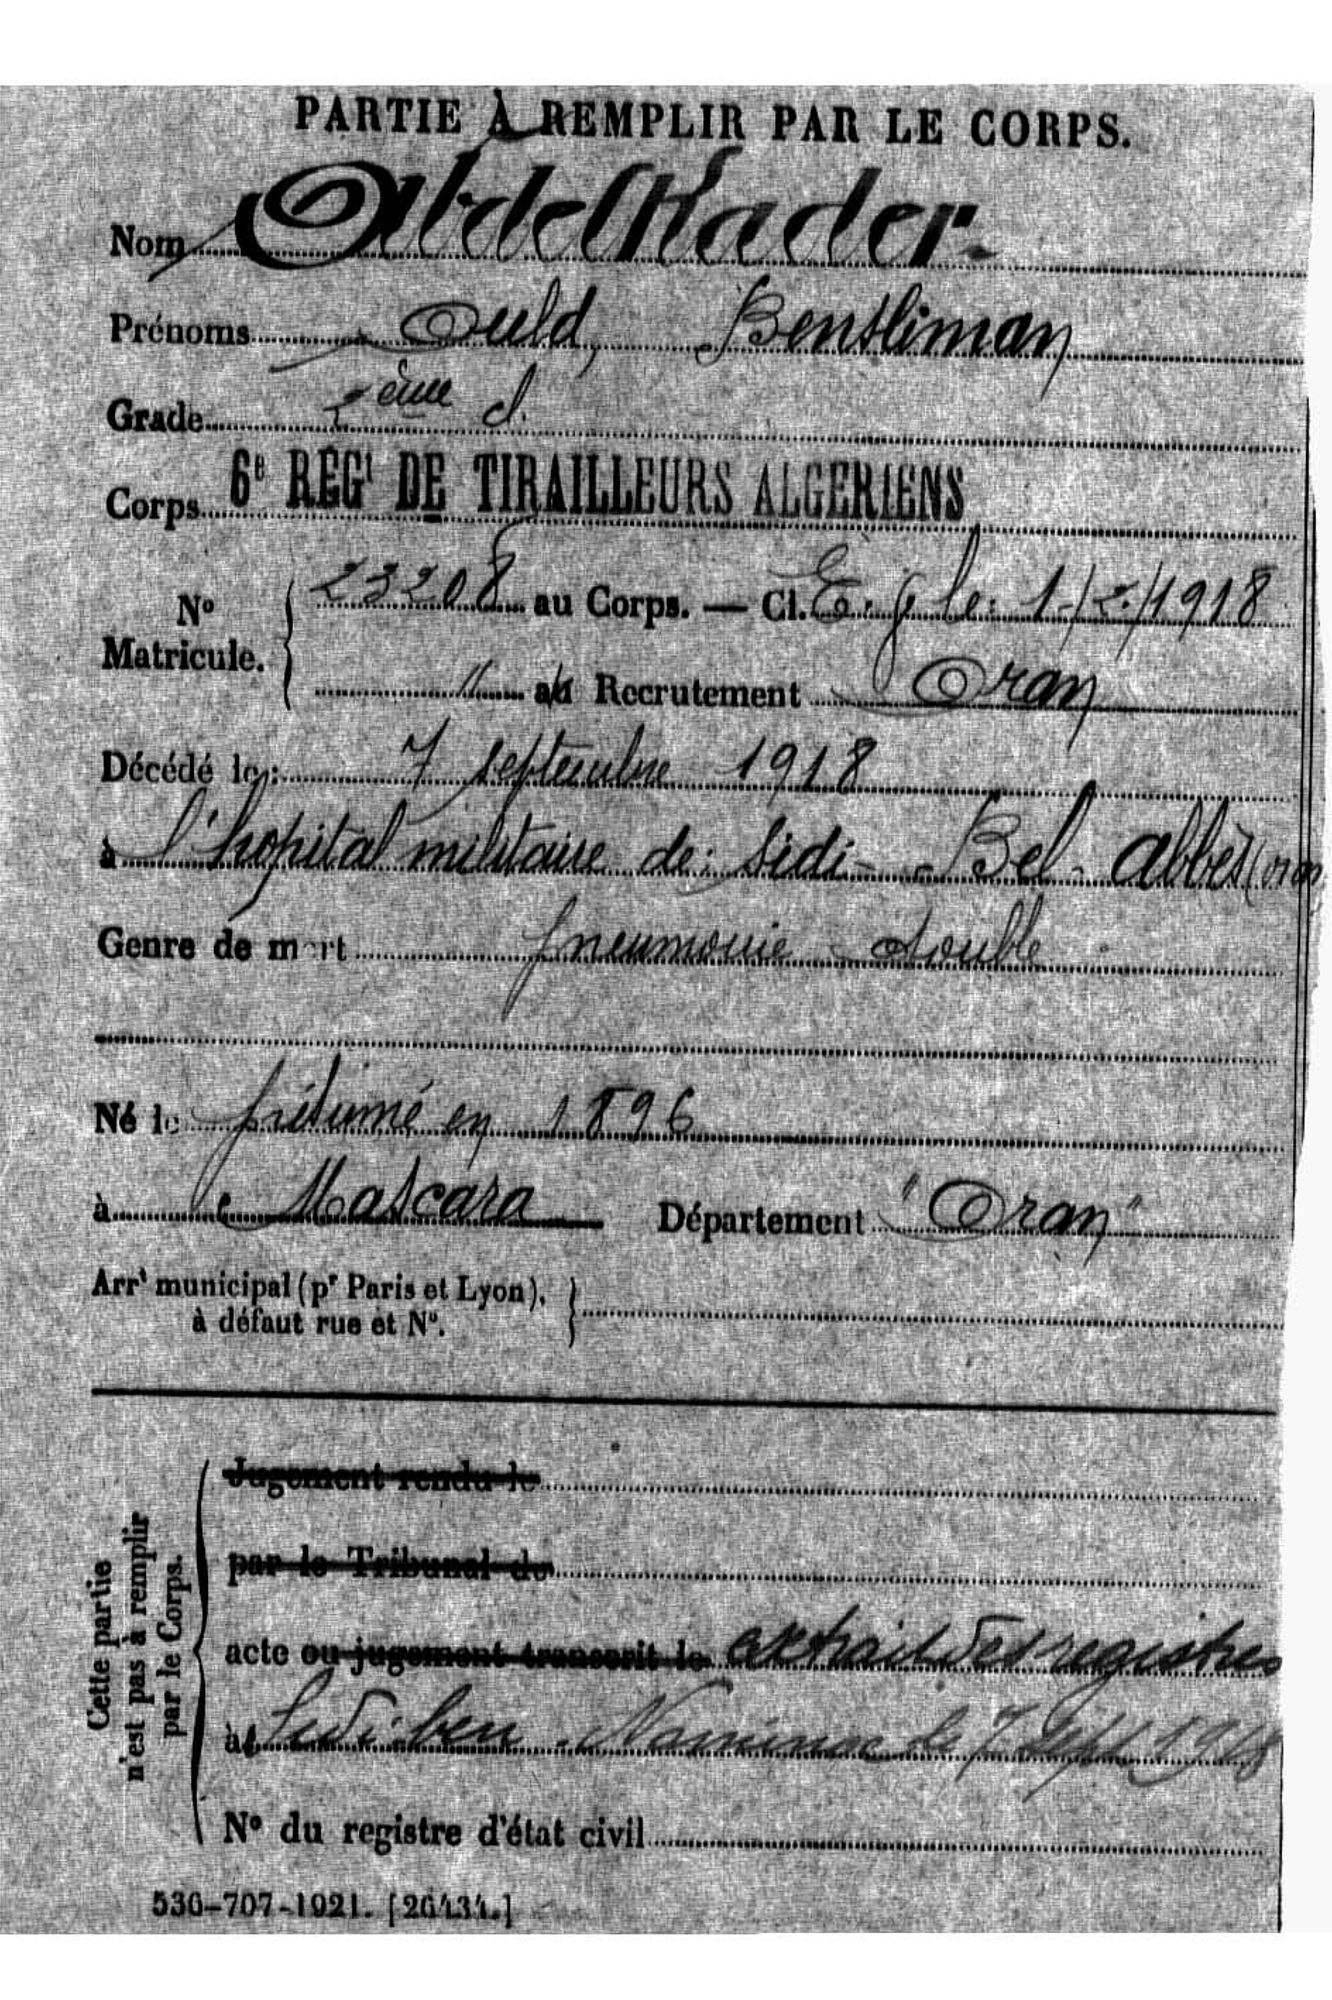 PARTIE À REMPLIR PAR LE CORPS.
Nom Abdelkader
Prénoms Ould, Bensliman
Grade 2ème cl.
Corps 6e REGt DE TIRAILLEURS ALGERIENS
No Matricule. { 23208 au Corps. — Cl. E. le: 1/2/1918
" au Recrutement Oran
Décédé le: 7 septembre 1918
à l'hopital militaire de: Sidi-Bel-abbès (oran
Genre de mort pneumonie double
Né le présumé en 1896
à Mascara Département "Oran"
Arrt municipal (pr Paris et Lyon), à défaut rue et No. }
Cette partie n'est pas à remplir par le Corps.
Jugement rendu le
par le Tribunal de
acte ou jugement transcrit le extrait des registres
à le 7 Sept 1918
No du registre d'état civil
530-707-1921. [26434.]